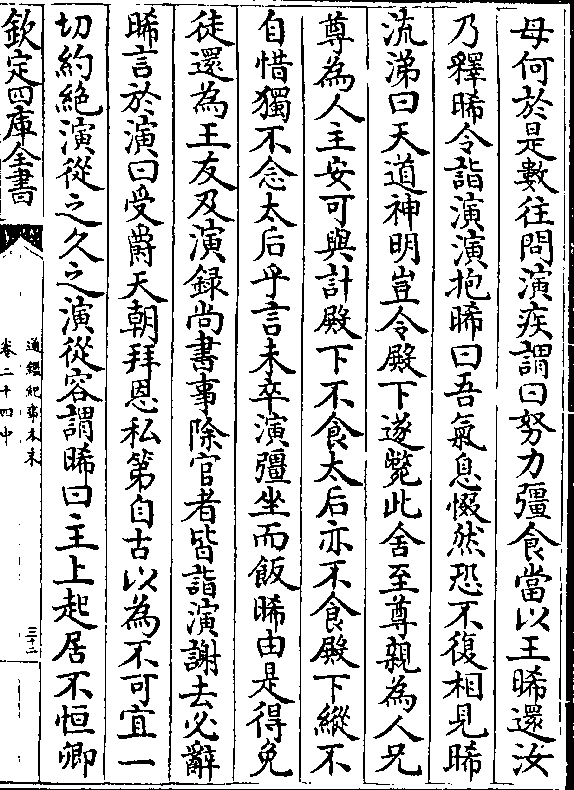 母何於是數往問演疾謂曰努力彊食當以王晞還汝
乃釋晞令詣演演抱晞曰吾氣息惙然恐不復相見晞
流涕曰天道神明豈令殿下遂斃此舍至尊親為人兄
尊為人主安可與計殿下不食太后亦不食殿下縱不
自惜獨不念太后乎言未卒演彊坐而飯晞由是得免
徒還為王友及演録尚書事除官者皆詣演謝去必辭
晞言於演曰受爵天朝拜恩私第自古以為不可宜一
切約絶演從之久之演從容謂晞曰主上起居不恒卿
欽定四庫全書
通鑑紀事本末
卷二十四中
三十二